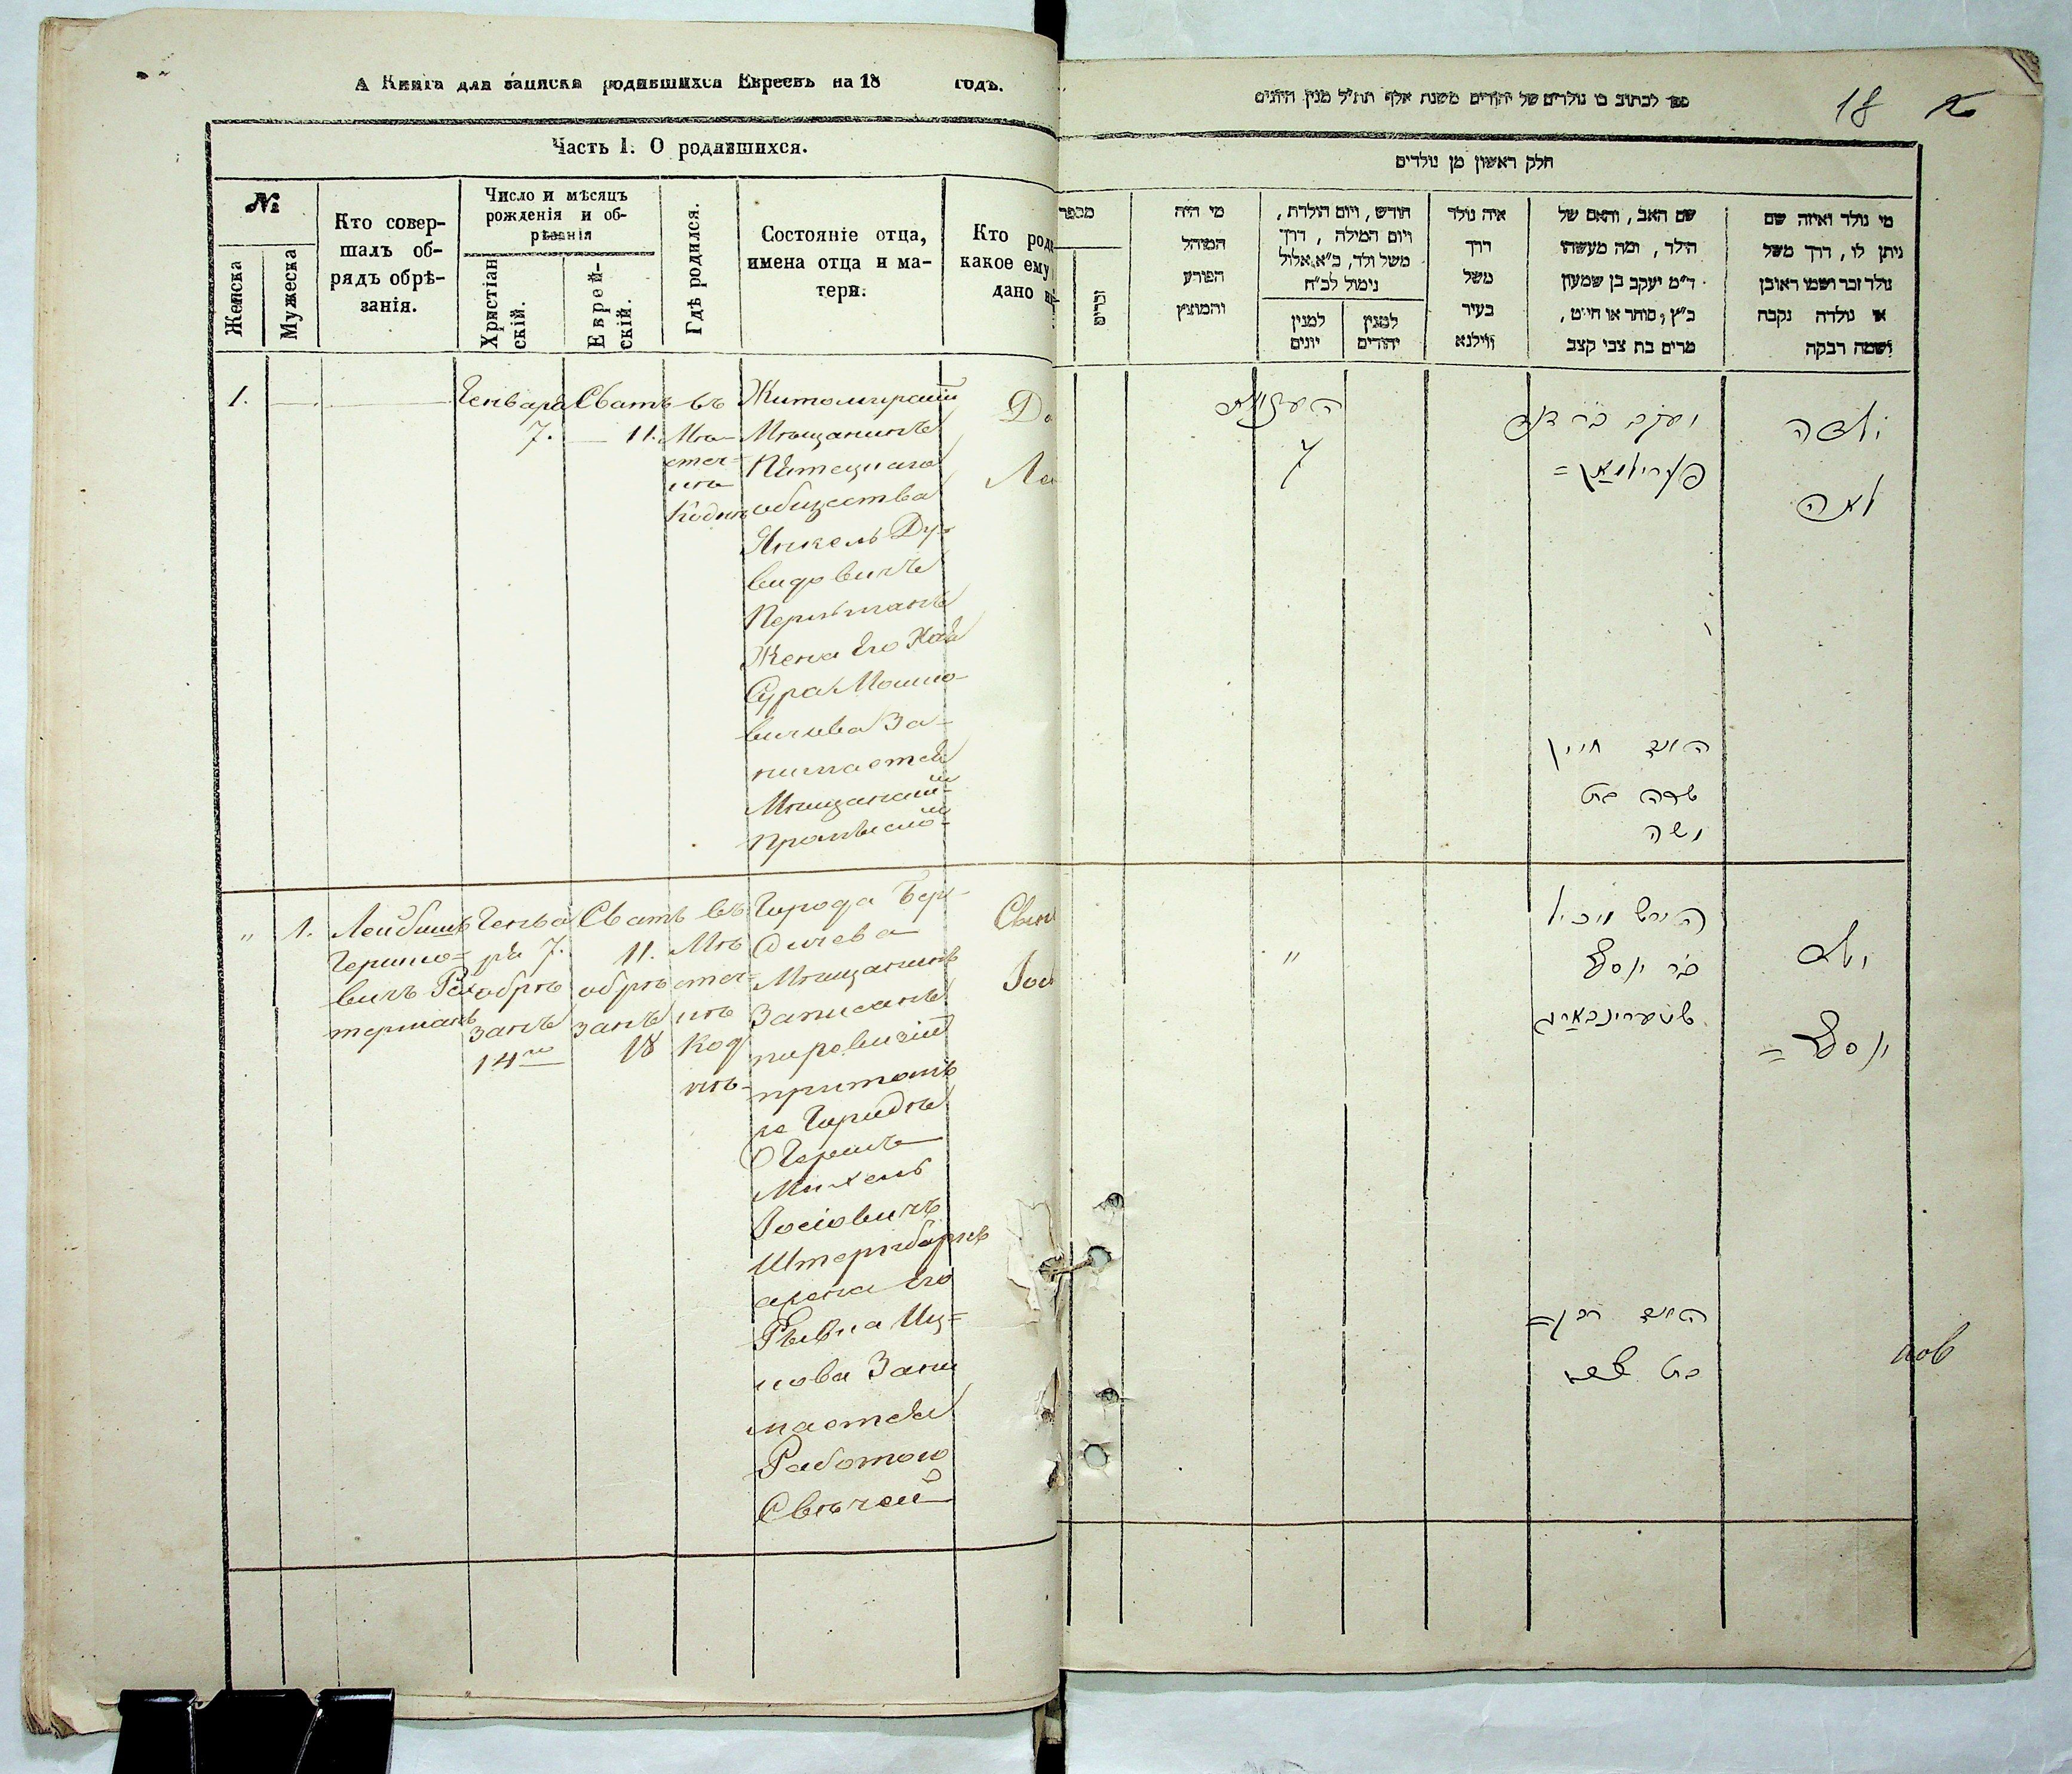 А Книга для записки родившихся Евреевъ на 18 годъ.
Часть I. О родившихся.
№
Женска
Мужеска
Кто совер-
шалъ об-
рядъ обрѣ-
занія.
Число и мѣсяцъ
рожденія и об-
рѣзанія
Христіан
скій.
Еврей-
скій.
Гдѣ родился.
Состояніе отца,
имена отца и ма-
тери.
Кто род
какое ему
дано
1.
Генваря
7.
Сватъ
11.
въ
Мѣ-
стеч-
кѣ
Коднѣ
Житомирскій
Мѣщанинъ
общества
Янкель Ду-
видовичъ
Перельманъ
Жена Его Хая
Сура Мошко-
вичева За-
нимается
Мѣщански-
Промысло-
До
Ле
„
1.
Лейбишъ
Гершко-
вичъ
терманъ
Генва
ря 7.
обрѣ
занъ
14го
Сватъ
11.
обрѣ
занъ
18
въ
Мѣ
стеч-
кѣ
Код
нѣ-
Города Бер-
дичева
Мѣщанинъ
Записанъ
по ревизіи
при томъ
же Городѣ
Гершъ
Михель
Іосіовичъ
Штернбаргъ
жена Его
Ривка Иц-
кова Зани
мается
Работою
Свѣчей
Сынъ
Іос
ספר לכתוב בו נולדים של יהודים משנת אלף תת״ל מנין היונים
18
חלק ראשון מן נולדים
מספר
זכרים
מי היה
המוהל
הפורע
והמוצץ
חודש, ויום הולדת,
ויום המילה, דרך
משל ולד, כ״א אלול
נימול לכ״ח
למנין
יונים
למנין
יהודים
איה נולד
דרך
משל
בעיר
ווילנא
שם האב, והאם של
הילד, ומה מעשהו
ד״מ יעקב בן שמעון
כ״ץ, סוחר או חייט,
מרים בת צבי קצב
מי נולד ואיזה שם
ניתן לו, דרך משל
נולד זכר ושמו ראובן
או נולדה נקבה
ושמה רבקה
7
יעקב ב״ר דוד
ילדה
לאה
האם חיי׳
שרה בת
משה
„
הירש מיכל
ב״ר יוסף
שטערינבארג
ילד
יוסף =
האם רבקה
בת